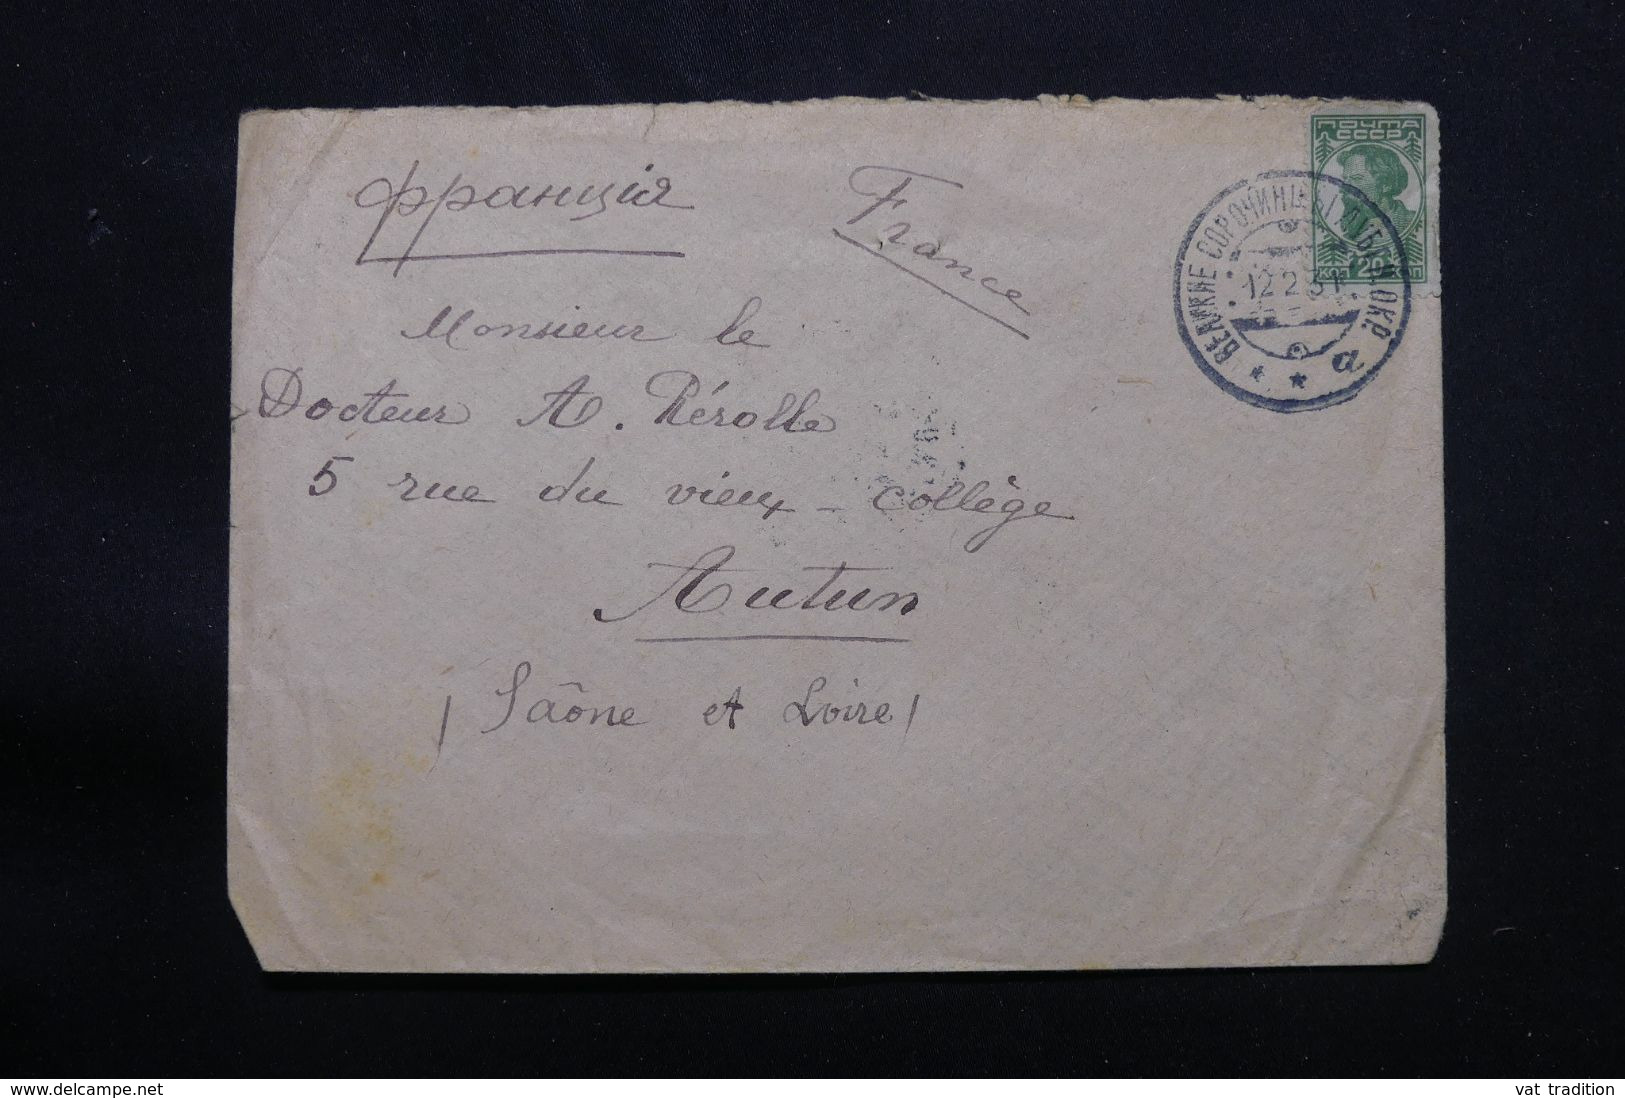 ПОЧТА
СССР
20
ВЕЛИКИЕ СОРОЧИНЦЫ ОКР.
12 2 31
а
Франція
France
Monsieur le
Docteur A. Rérolle
5 rue du vieux - collège
Autun
/ Saône et Loire /
www.delcampe.net
vat_tradition